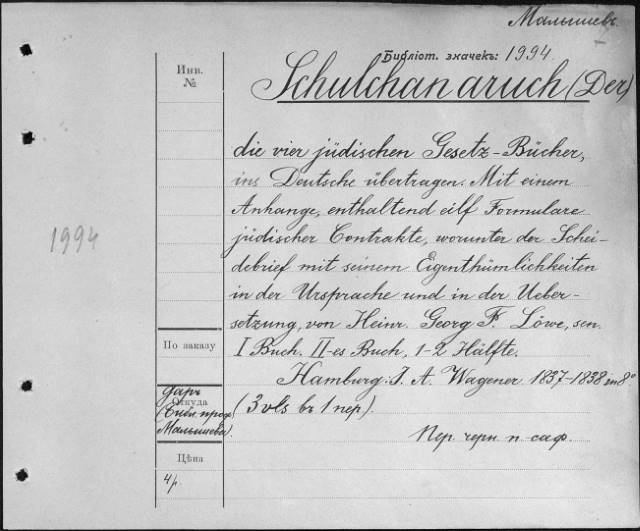 Малышевъ
Библіот. значекъ: 1994.
Инв.
№
Schulchan aruch (Der)
die vier jüdischen Gesetz-Bücher,
ins Deutsche übertragen. Mit einem
Anhange, enthaltend eilf Formulare
1994
jüdischer Contrakte, worunter der Schei-
debrief mit seinem Eigenthümlichkeiten
in der Ursprache und in der Ueber-
setzung, von Heinr. Georg F. Löwe, sen.
По заказу
I Buch. II-es Buch, 1-2 Hälfte.
Hamburg: J. A. Wagener 1837-1838 in 8°
даръ
Откуда
(3 vls br 1 пер).
(Библ. проф.
Малышева).
Пер. черн. п. саф.
Цѣна
4/